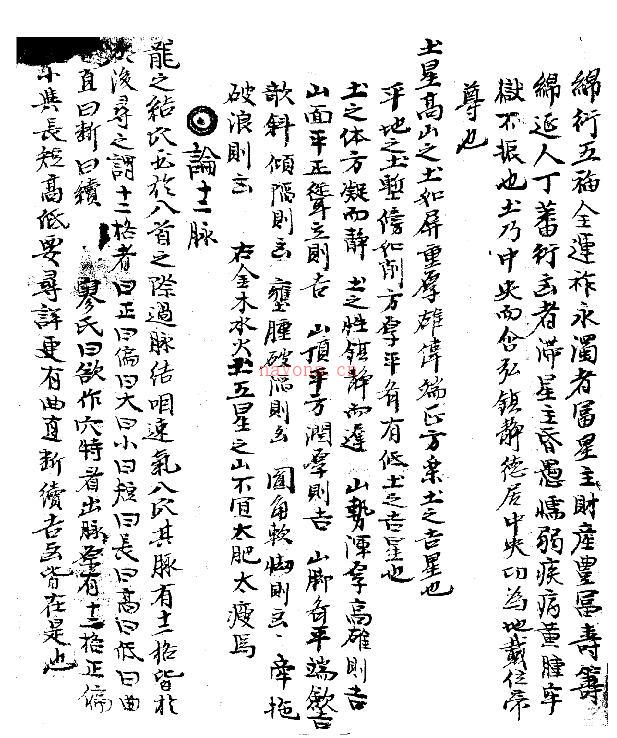 綿衍五福全運祚永濁者富星主財產豊冨壽筭
綿延人丁蕃衍凶者滯星主昏愚懦弱疾病黃腫牢
獄不振也土乃中央而含弘鎮靜德居中央功為地載位常
尊也
土星高山之土如屏重厚雄偉端正方棄土之吉星也
平地之土塹傍如削方厚平有有低土之吉星也
土之体方凝而靜 土之性鎮靜而遲 山勢渾厚高雄則吉
山面平正聳立則吉 山頂平方濶厚則吉 山脚有平端歛吉
欹斜傾陷則凶 壅腫破陷則凶 圓角軟則凶 牽拖
破浪則凶 右金木水火土五星之山不宜太肥太瘦焉
論十二脉
龍之結穴必於八首之際過脉結咽速氣八穴其脉有十二格皆於
後尋之謂十二格者曰正曰偏曰大曰小曰短曰長曰高曰低曰曲
直曰斷曰續 廖氏曰欲作穴特看出脉有十二格正偏
小與長短高低要尋詳更有曲直斷續吉凶皆在是也
nayong.cn